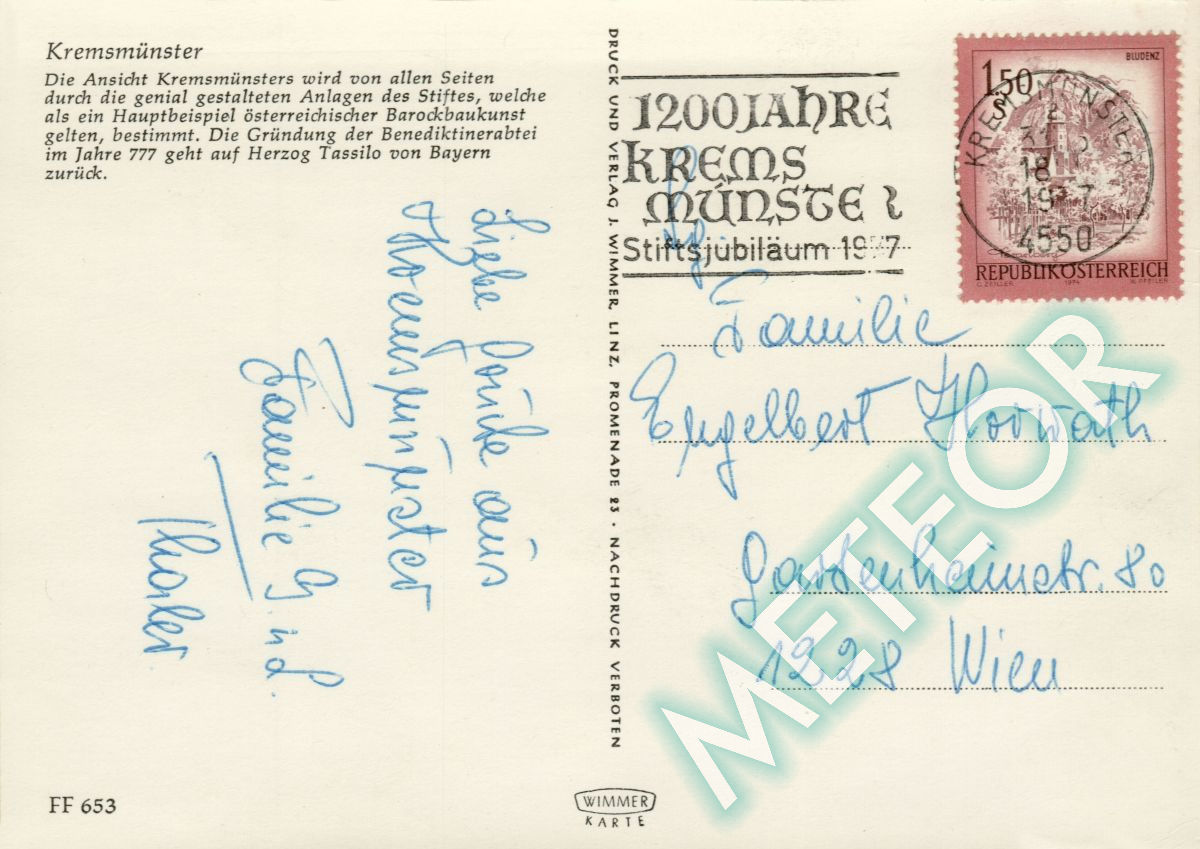 Kremsmünster
Die Ansicht Kremsmünsters wird von allen Seiten
durch die genial gestalteten Anlagen des Stiftes, welche
als ein Hauptbeispiel österreichischer Barockbaukunst
gelten, bestimmt. Die Gründung der Benediktinerabtei
im Jahre 777 geht auf Herzog Tassilo von Bayern
zurück.
Liebe Grüße aus
Kremsmünster
Familie
FF 653
DRUCK UND VERLAG J. WIMMER, LINZ, PROMENADE 23 · NACHDRUCK VERBOTEN
WIMMER
KARTE
1200 JAHRE
KREMS
MÜNSTER
Stiftsjubiläum 1977
BLUDENZ
1.50
S
REPUBLIK ÖSTERREICH
G. ZEILER 1974 W. PFEILER
KREMSMÜNSTER
18
1977
4550
Familie
Engelbert Horvath
Gartenheimstr. 80
1228 Wien
METEOR